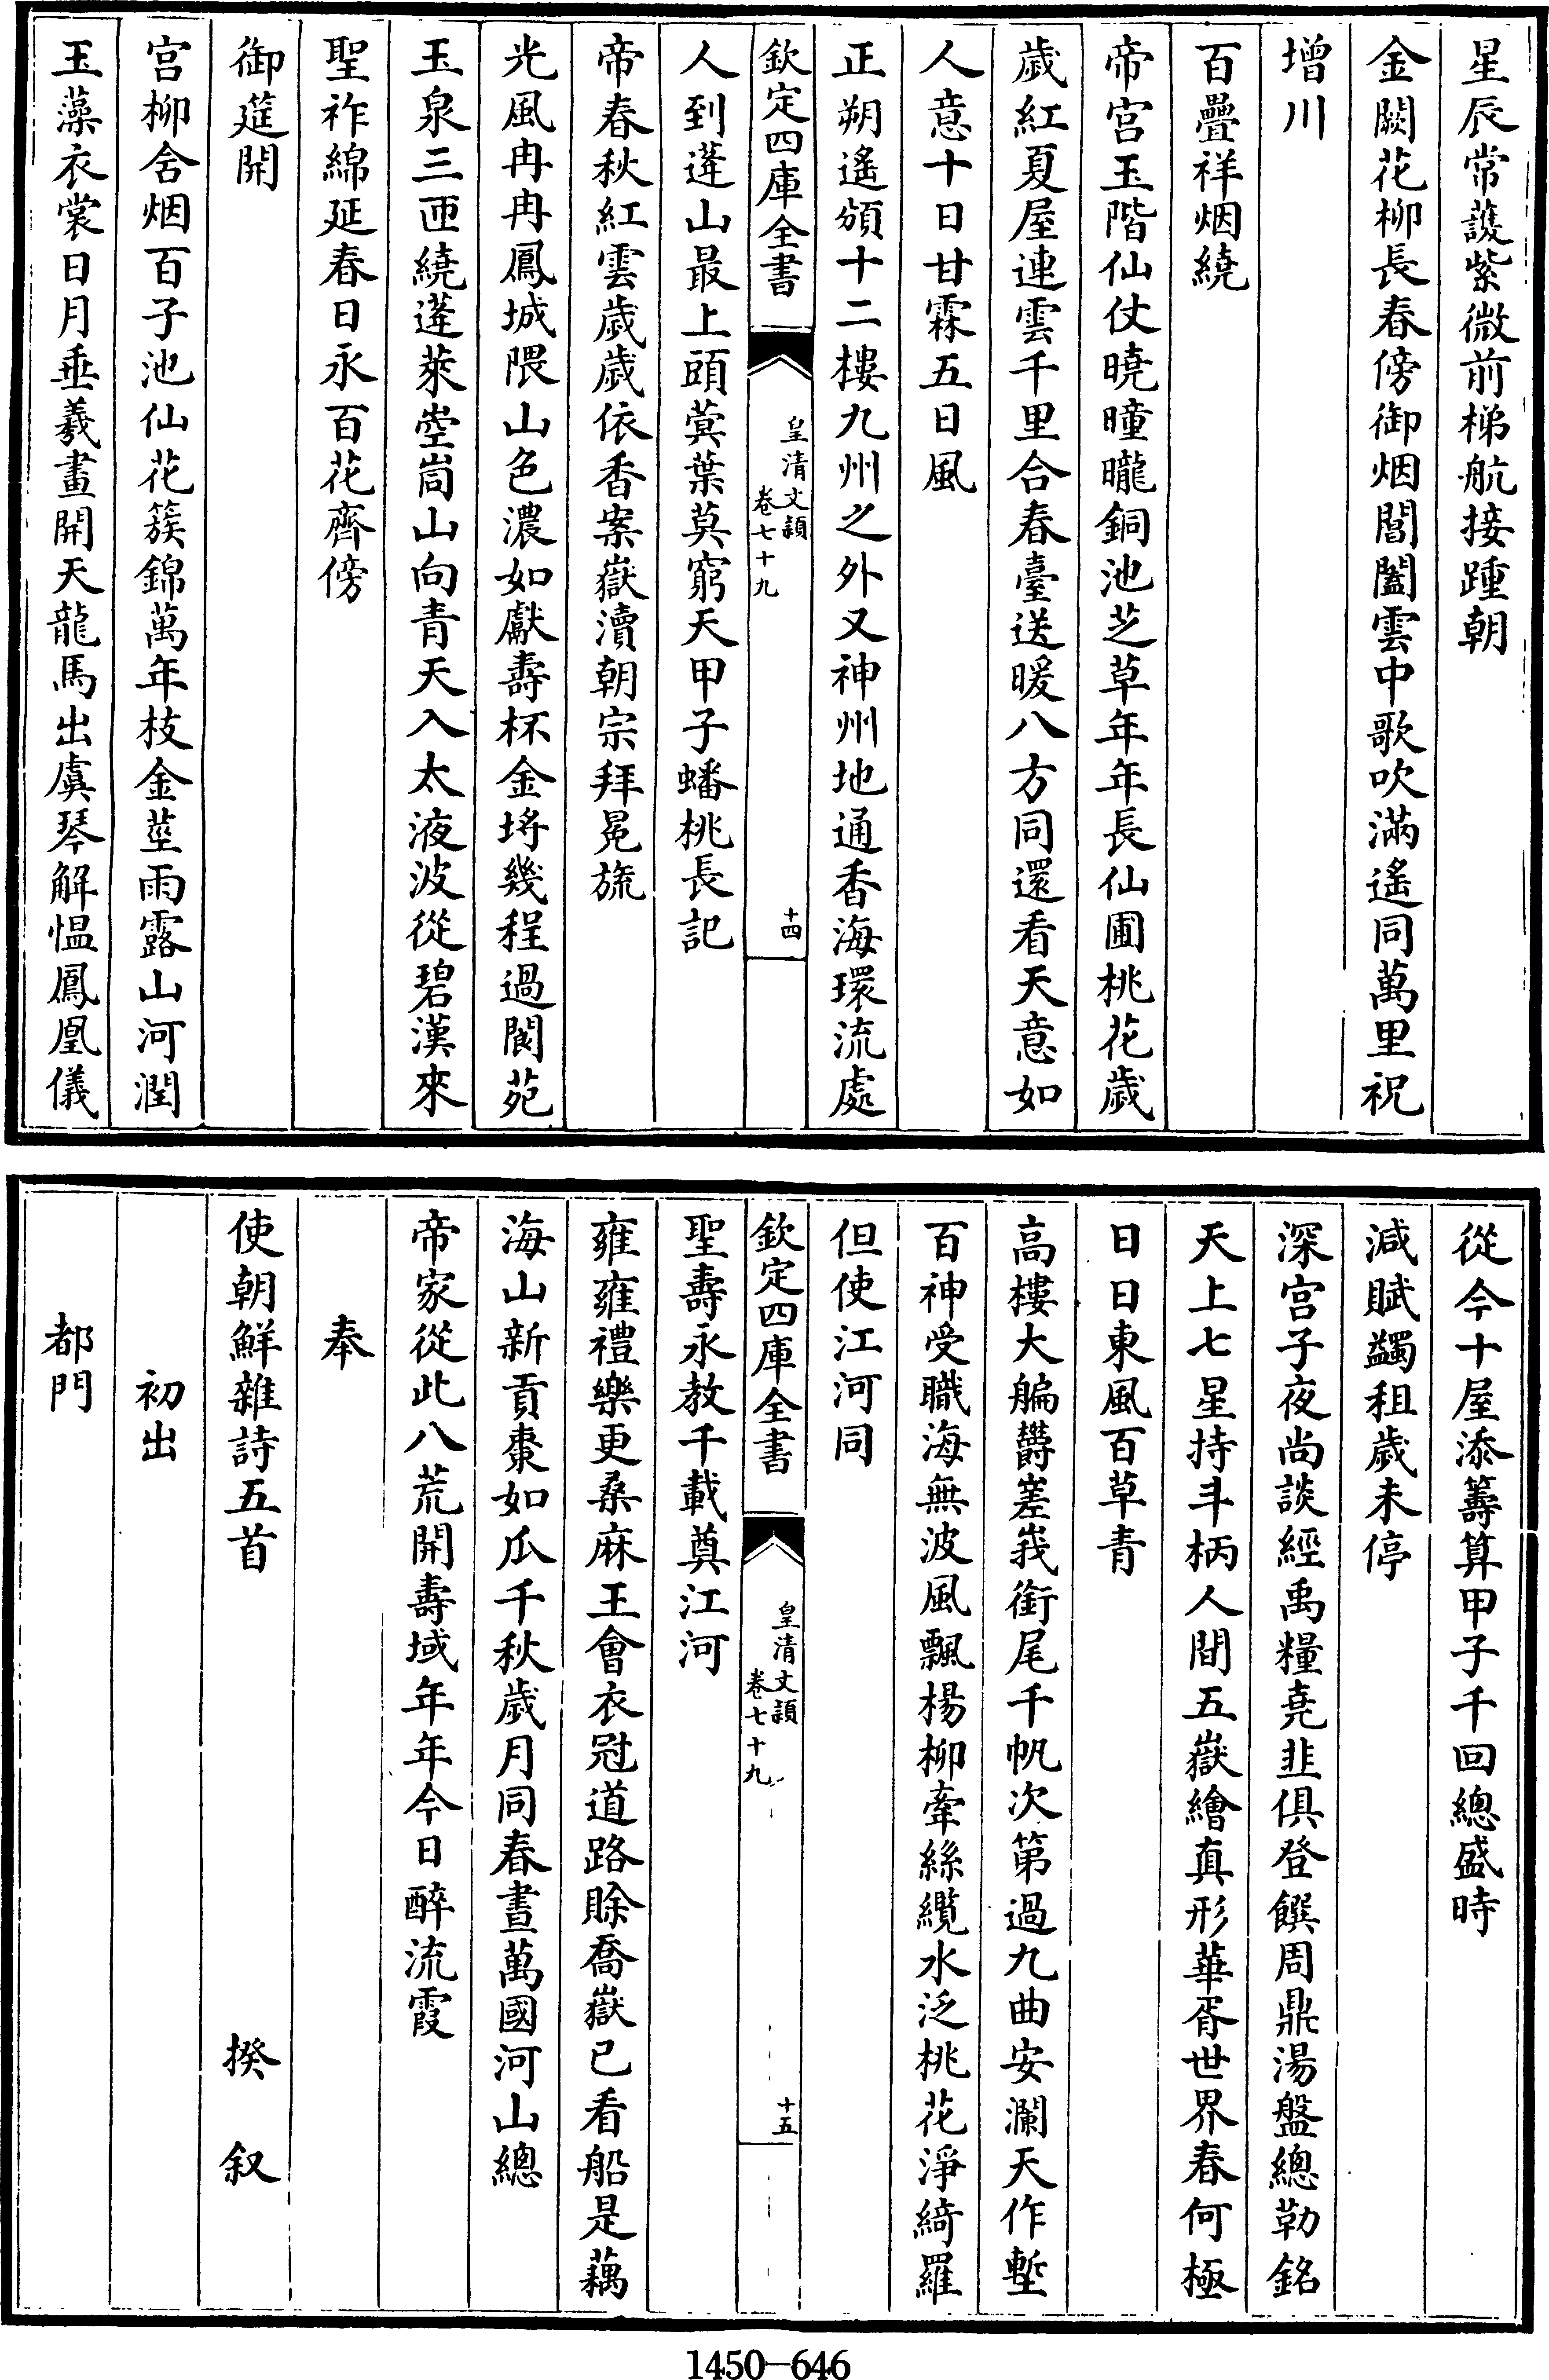 星辰常護紫微前梯航接踵朝
金闕花柳長春傍御烟閶闔雲中歌吹滿遙同萬里祝
增川
百疊祥烟繞
帝宫玉階仙仗曉曈曨銅池芝草年年長仙圃桃花歲
歲紅夏屋連雲千里合春臺送暖八方同還看天意如
人意十日甘霖五日風
正朔遙頒十二樓九州之外又神州地通香海環流處
欽定四庫全書
皇清文頴
卷七十九
十四
人到蓬山最上頭蓂葉莫窮天甲子蟠桃長記
帝春秋紅雲歲歲依香案嶽瀆朝宗拜冕旒
光風冉冉鳳城隈山色濃如獻壽杯金埒幾程過閬苑
玉泉三匝繞蓬萊崆峒山向青天入太液波從碧漢來
聖祚綿延春日永百花齊傍
御筵開
宫柳含烟百子池仙花簇錦萬年枝金莖雨露山河潤
玉藻衣裳日月垂羲畫開天龍馬出虞琴解愠鳳凰儀
從今十屋添籌算甲子千回總盛時
減賦蠲租歲未停
深宫子夜尚談經禹糧堯韭俱登饌周鼎湯盤總勒銘
天上七星持斗柄人間五嶽繪真形華胥世界春何極
日日東風百草青
高樓大艑欝嵳峩銜尾千帆次第過九曲安瀾天作塹
百神受職海無波風飄楊柳牽絲纜水泛桃花淨綺羅
但使江河同
欽定四庫全書
皇清文頴
卷七十九
十五
聖壽永教千載奠江河
雍雍禮樂更桑麻王會衣冠道路賒喬嶽已看船是藕
海山新貢棗如瓜千秋歲月同春晝萬國河山總
帝家從此八荒開壽域年年今日醉流霞
奉
使朝鮮雜詩五首 揆叙
初出
都門
1450-646